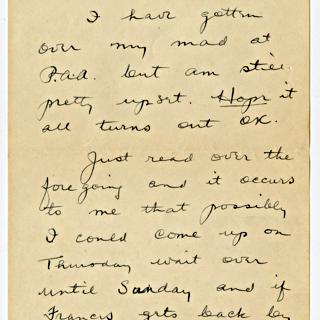 I have gotten
over my mad at
P.a.a. but am still
pretty upset. Hope it
all turns out OK.
Just read over the
foregoing and it occurs
to me that possibly
I could come up on
Thursday wait over
until Sunday and if
Francis gets back by